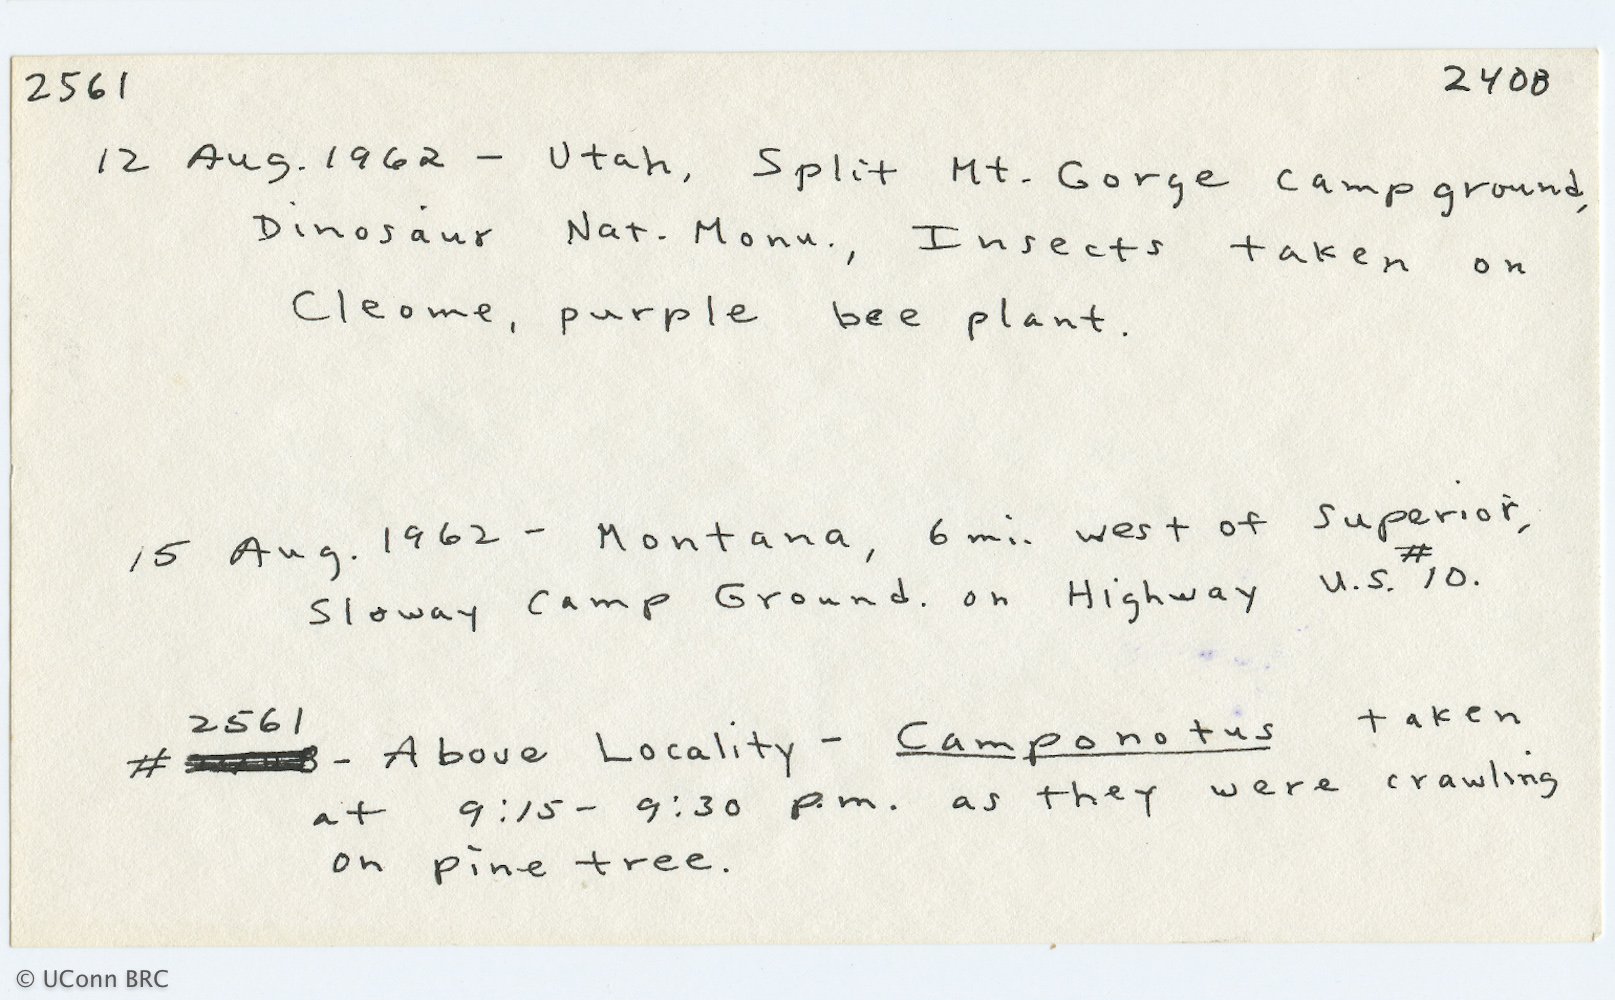 2561 2408
12 Aug. 1962 - Utah, Split Mt. Gorge campground,
Dinosaur Nat. Monu., Insects taken on
Cleome, purple bee plant.
15 Aug. 1962 - Montana, 6 mi. west of Superior,
Sloway Camp Ground. on Highway U.S. #10.
2561
# - Above Locality - Camponotus taken
at 9:15 - 9:30 p.m. as they were crawling
on pine tree.
© UConn BRC